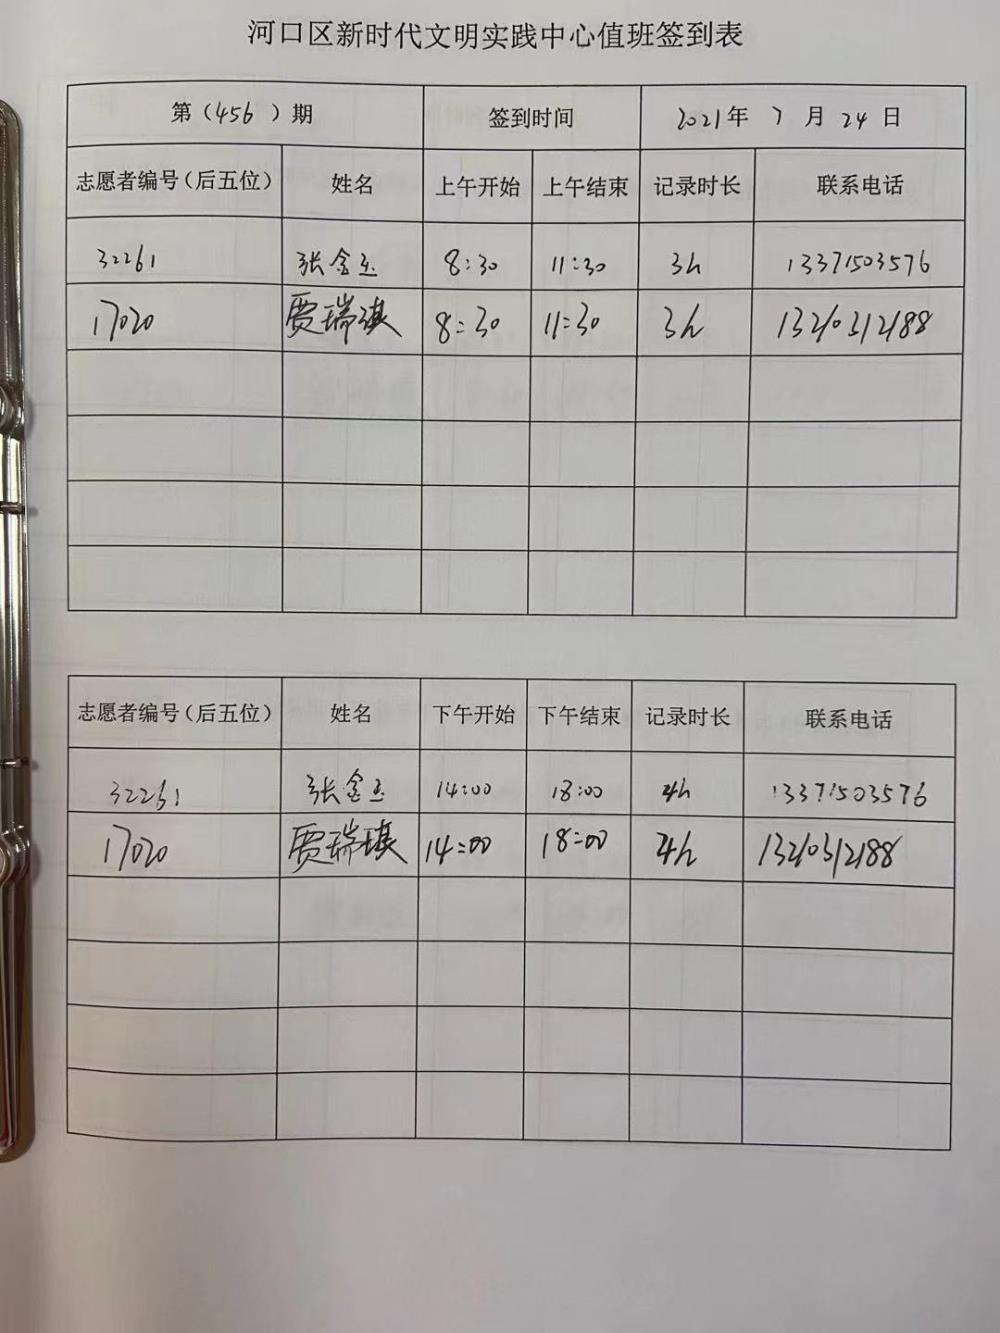 河口区新时代文明实践中心值班签到表
第（456 ）期 签到时间 2021年 7 月 24 日
志愿者编号（后五位） 姓名 上午开始 上午结束 记录时长 联系电话
32261 张金玉 8:30 11:30 3h 13371503576
17020 贾瑞琪 8:30 11:30 3h 13210312188
志愿者编号（后五位） 姓名 下午开始 下午结束 记录时长 联系电话
32261 张金玉 14:00 18:00 4h 13371503576
17020 贾瑞琪 14:00 18:00 4h 13210312188